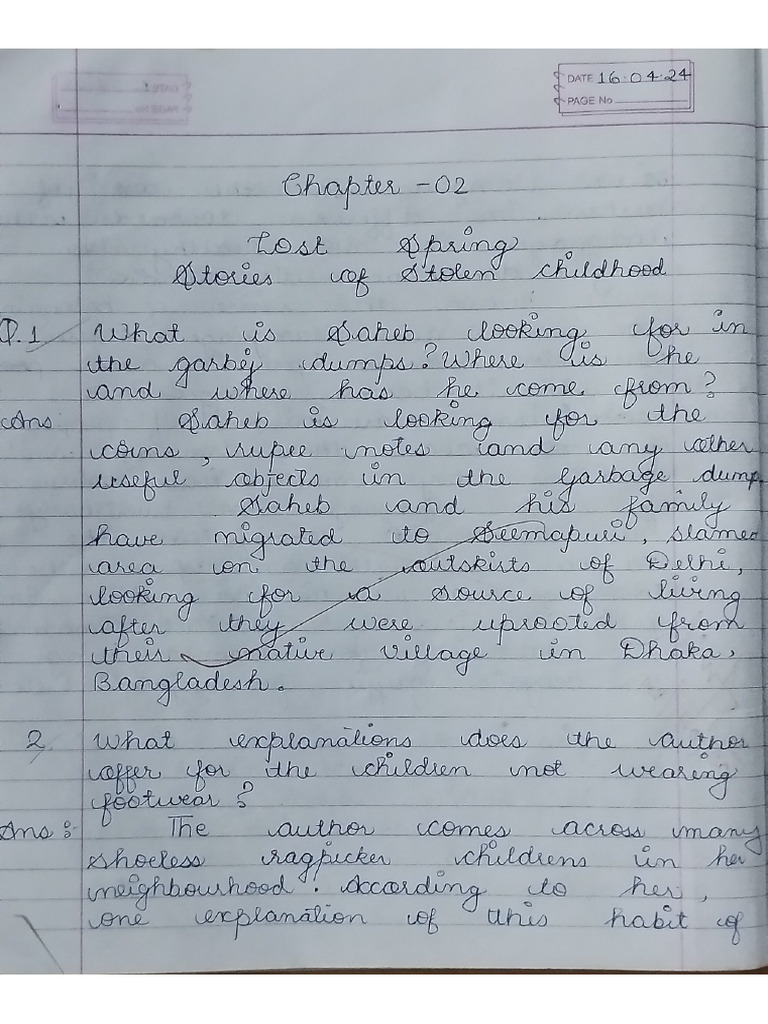 DATE 16.04.24
PAGE No
Chapter - 02
Lost Spring
Stories of Stolen childhood
Q.1 What is Saheb looking for in
the garbej dumps? Where is he
and where has he come from?
Ans Saheb is looking for the
coins, rupee notes and any other
useful objects in the garbage dump.
Saheb and his family
have migrated to Seemapuri, slamed
area on the outskirts of Delhi,
looking for a source of living
after they were uprooted from
their native village in Dhaka,
Bangladesh.
2 What explanations does the author
offer for the children not wearing
footwear?
Ans :- The author comes across many
shoeless ragpicker childrens in her
neighbourhood. According to her,
one explanation of this habit of